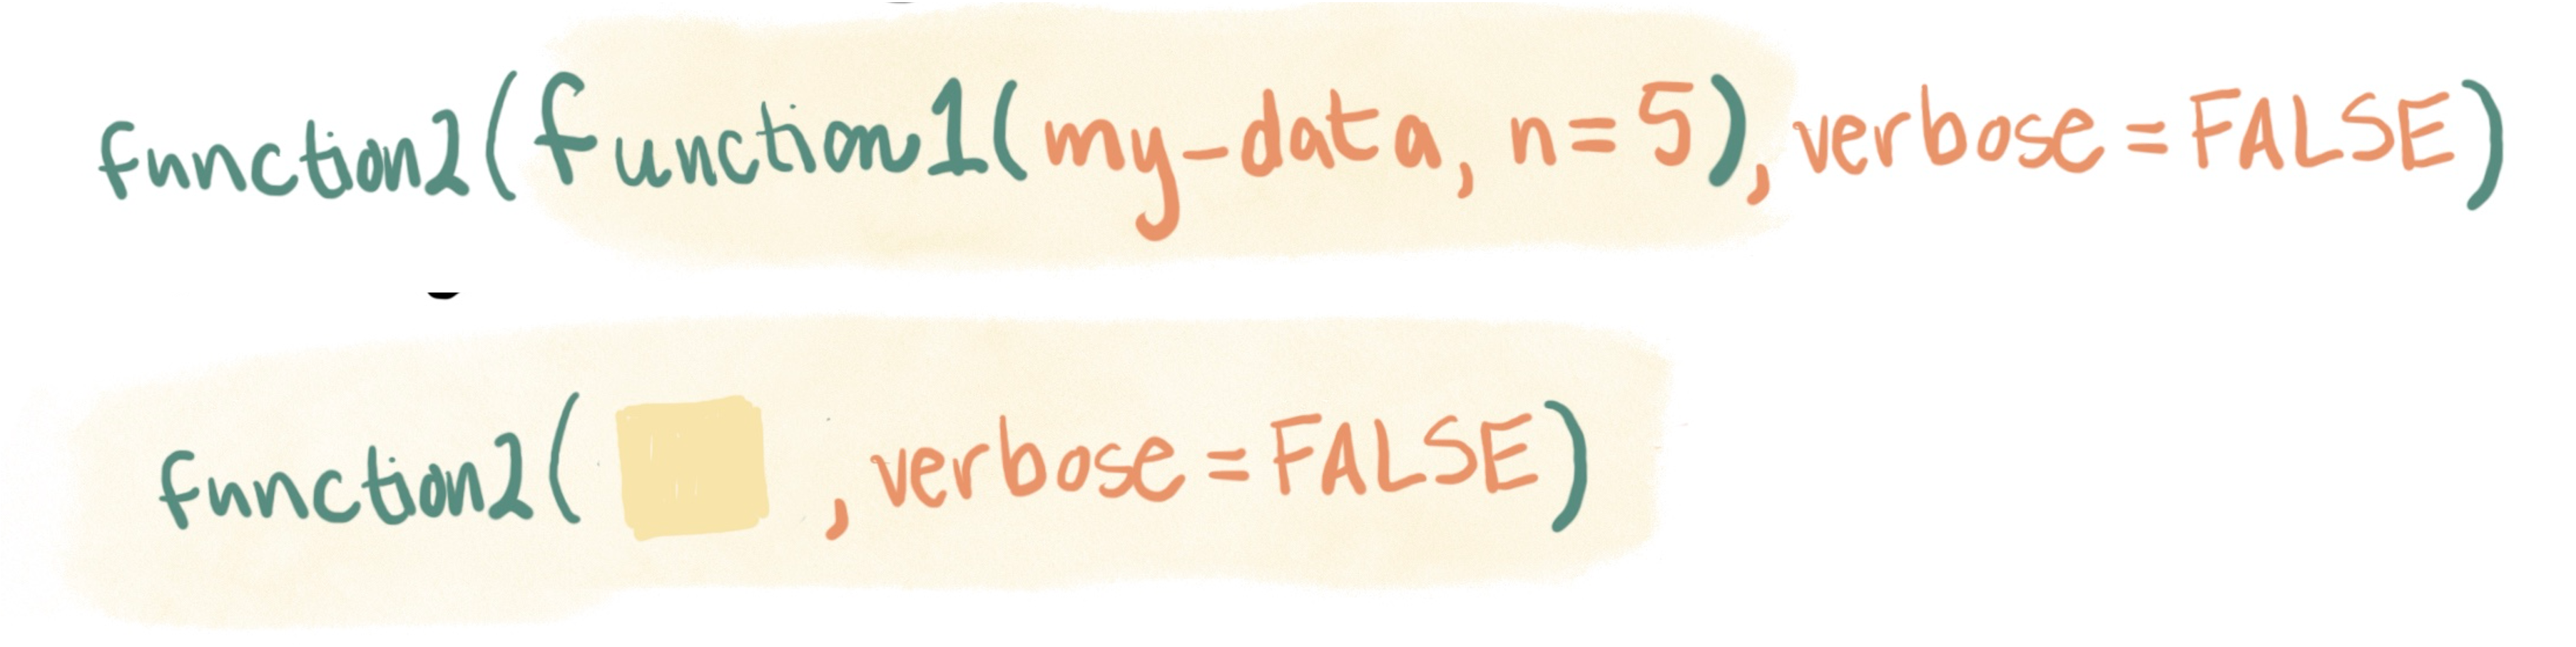 function2(function1(my_data, n=5), verbose = FALSE)
function2( , verbose = FALSE)